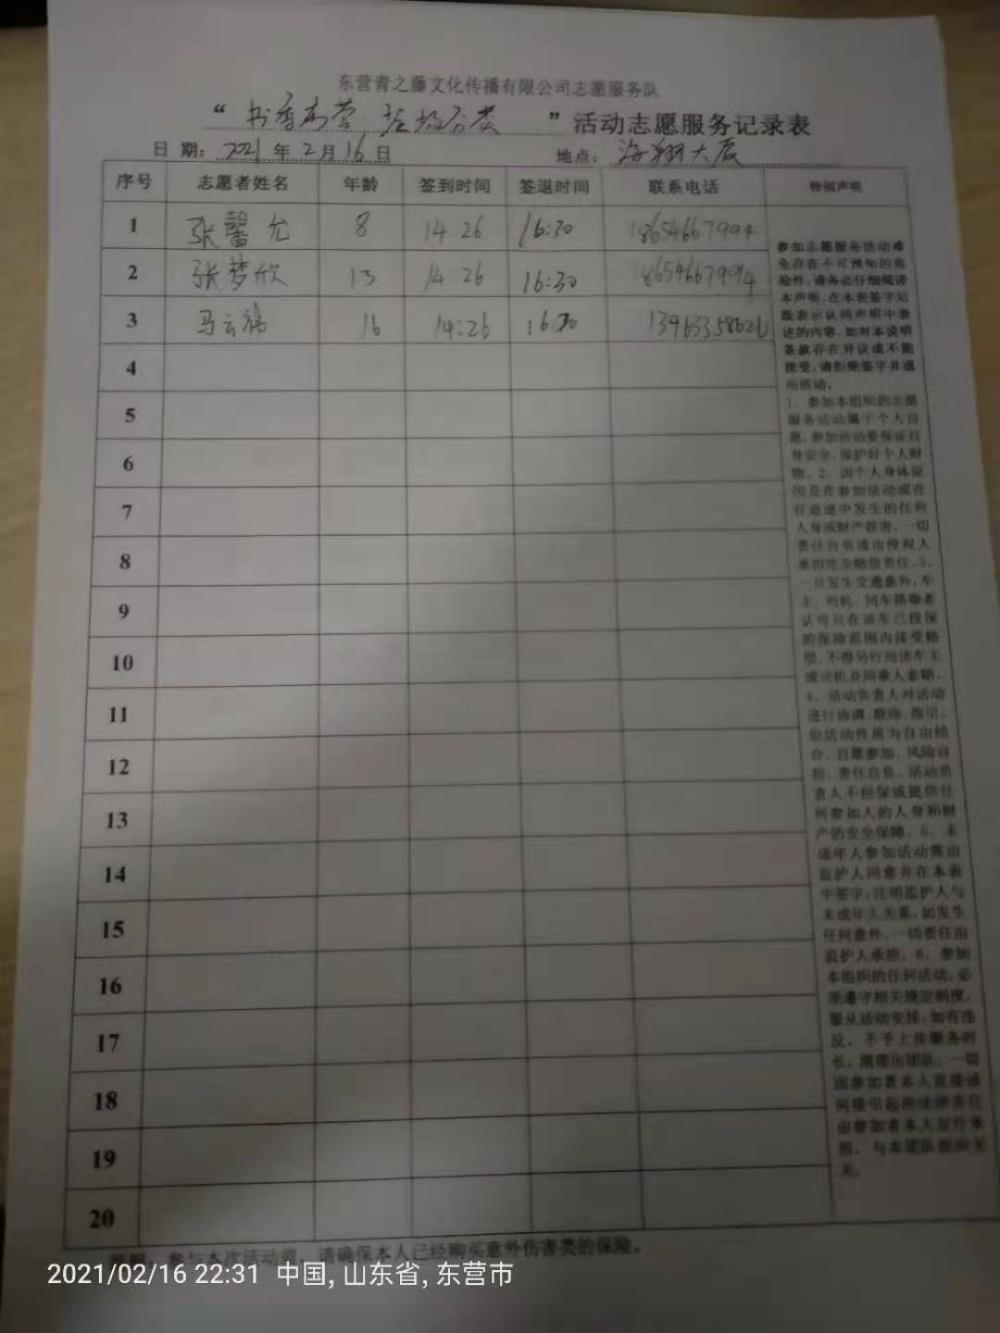 东营青之藤文化传播有限公司志愿服务队
“书香东营,垃圾分类”活动志愿服务记录表
日 期: 2021 年 2 月 16 日 地点: 海翔大厦
序号 志愿者姓名 年龄 签到时间 签退时间 联系电话 特别声明
1 张馨允 8 14:26 16:30 18654667994
2 张梦欣 13 14:26 16:30 18654667994
3 马云 16 14:26 16:30
4
5
6
7
8
9
10
11
12
13
14
15
16
17
18
19
20
参加志愿服务活动难
免存在不可预知的危
险性,请务必仔细阅读
本声明,在本表签字后
既表示认同声明中表
述的内容,如对本说明
条款存在异议或不能
接受,请拒绝签字并退
出活动。
1、参加本组织的志愿
服务活动属于个人自
愿,参加活动要保证自
身安全,保护好个人财
物。2、因个人身体原
因及在参加活动或在
往返途中发生的任何
人身或财产损害,一切
责任自负或由侵权人
承担完全赔偿责任。3、
一旦发生交通意外,车
主、司机、同车搭乘者
认可只在该车已投保
的保险范围内接受赔
偿,不得另行向该车主
或司机及同乘人索赔。
4、活动负责人对活动
进行协调、联络、指引,
但活动性质为自由结
合、自愿参加、风险自
担、责任自负。活动负
责人不担保或提供任
何参加人的人身和财
产的安全保障。5、未
成年人参加活动需由
监护人同意并在本表
中签字,注明监护人与
未成年人关系,如发生
任何意外,一切责任由
监护人承担。6、参加
本组织的任何活动,必
须遵守相关规定制度,
服从活动安排;如有违
反,不予上传服务时
长,清理出团队;一切
因参加者本人直接或
间接引起的法律责任
由参加者本人自行承
担,与本团队组织无
关。
参与本次活动前,请确保本人已经购买意外伤害类的保险。
2021/02/16 22:31 中国, 山东省, 东营市